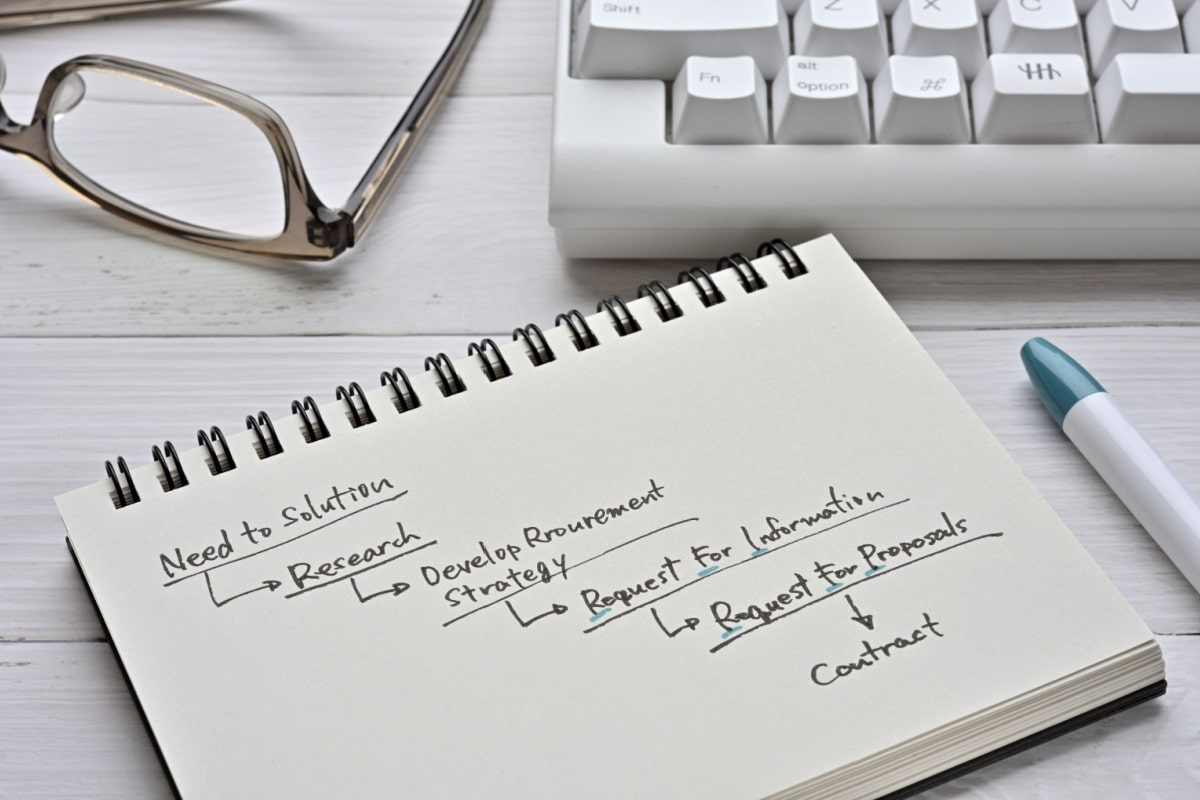 Shift
Z
X
C
V
Fn
alt
option
⌘
Need to Solution
Research
Develop Rrourement
Strategy
Request For Information
Request For Proposals
Contract